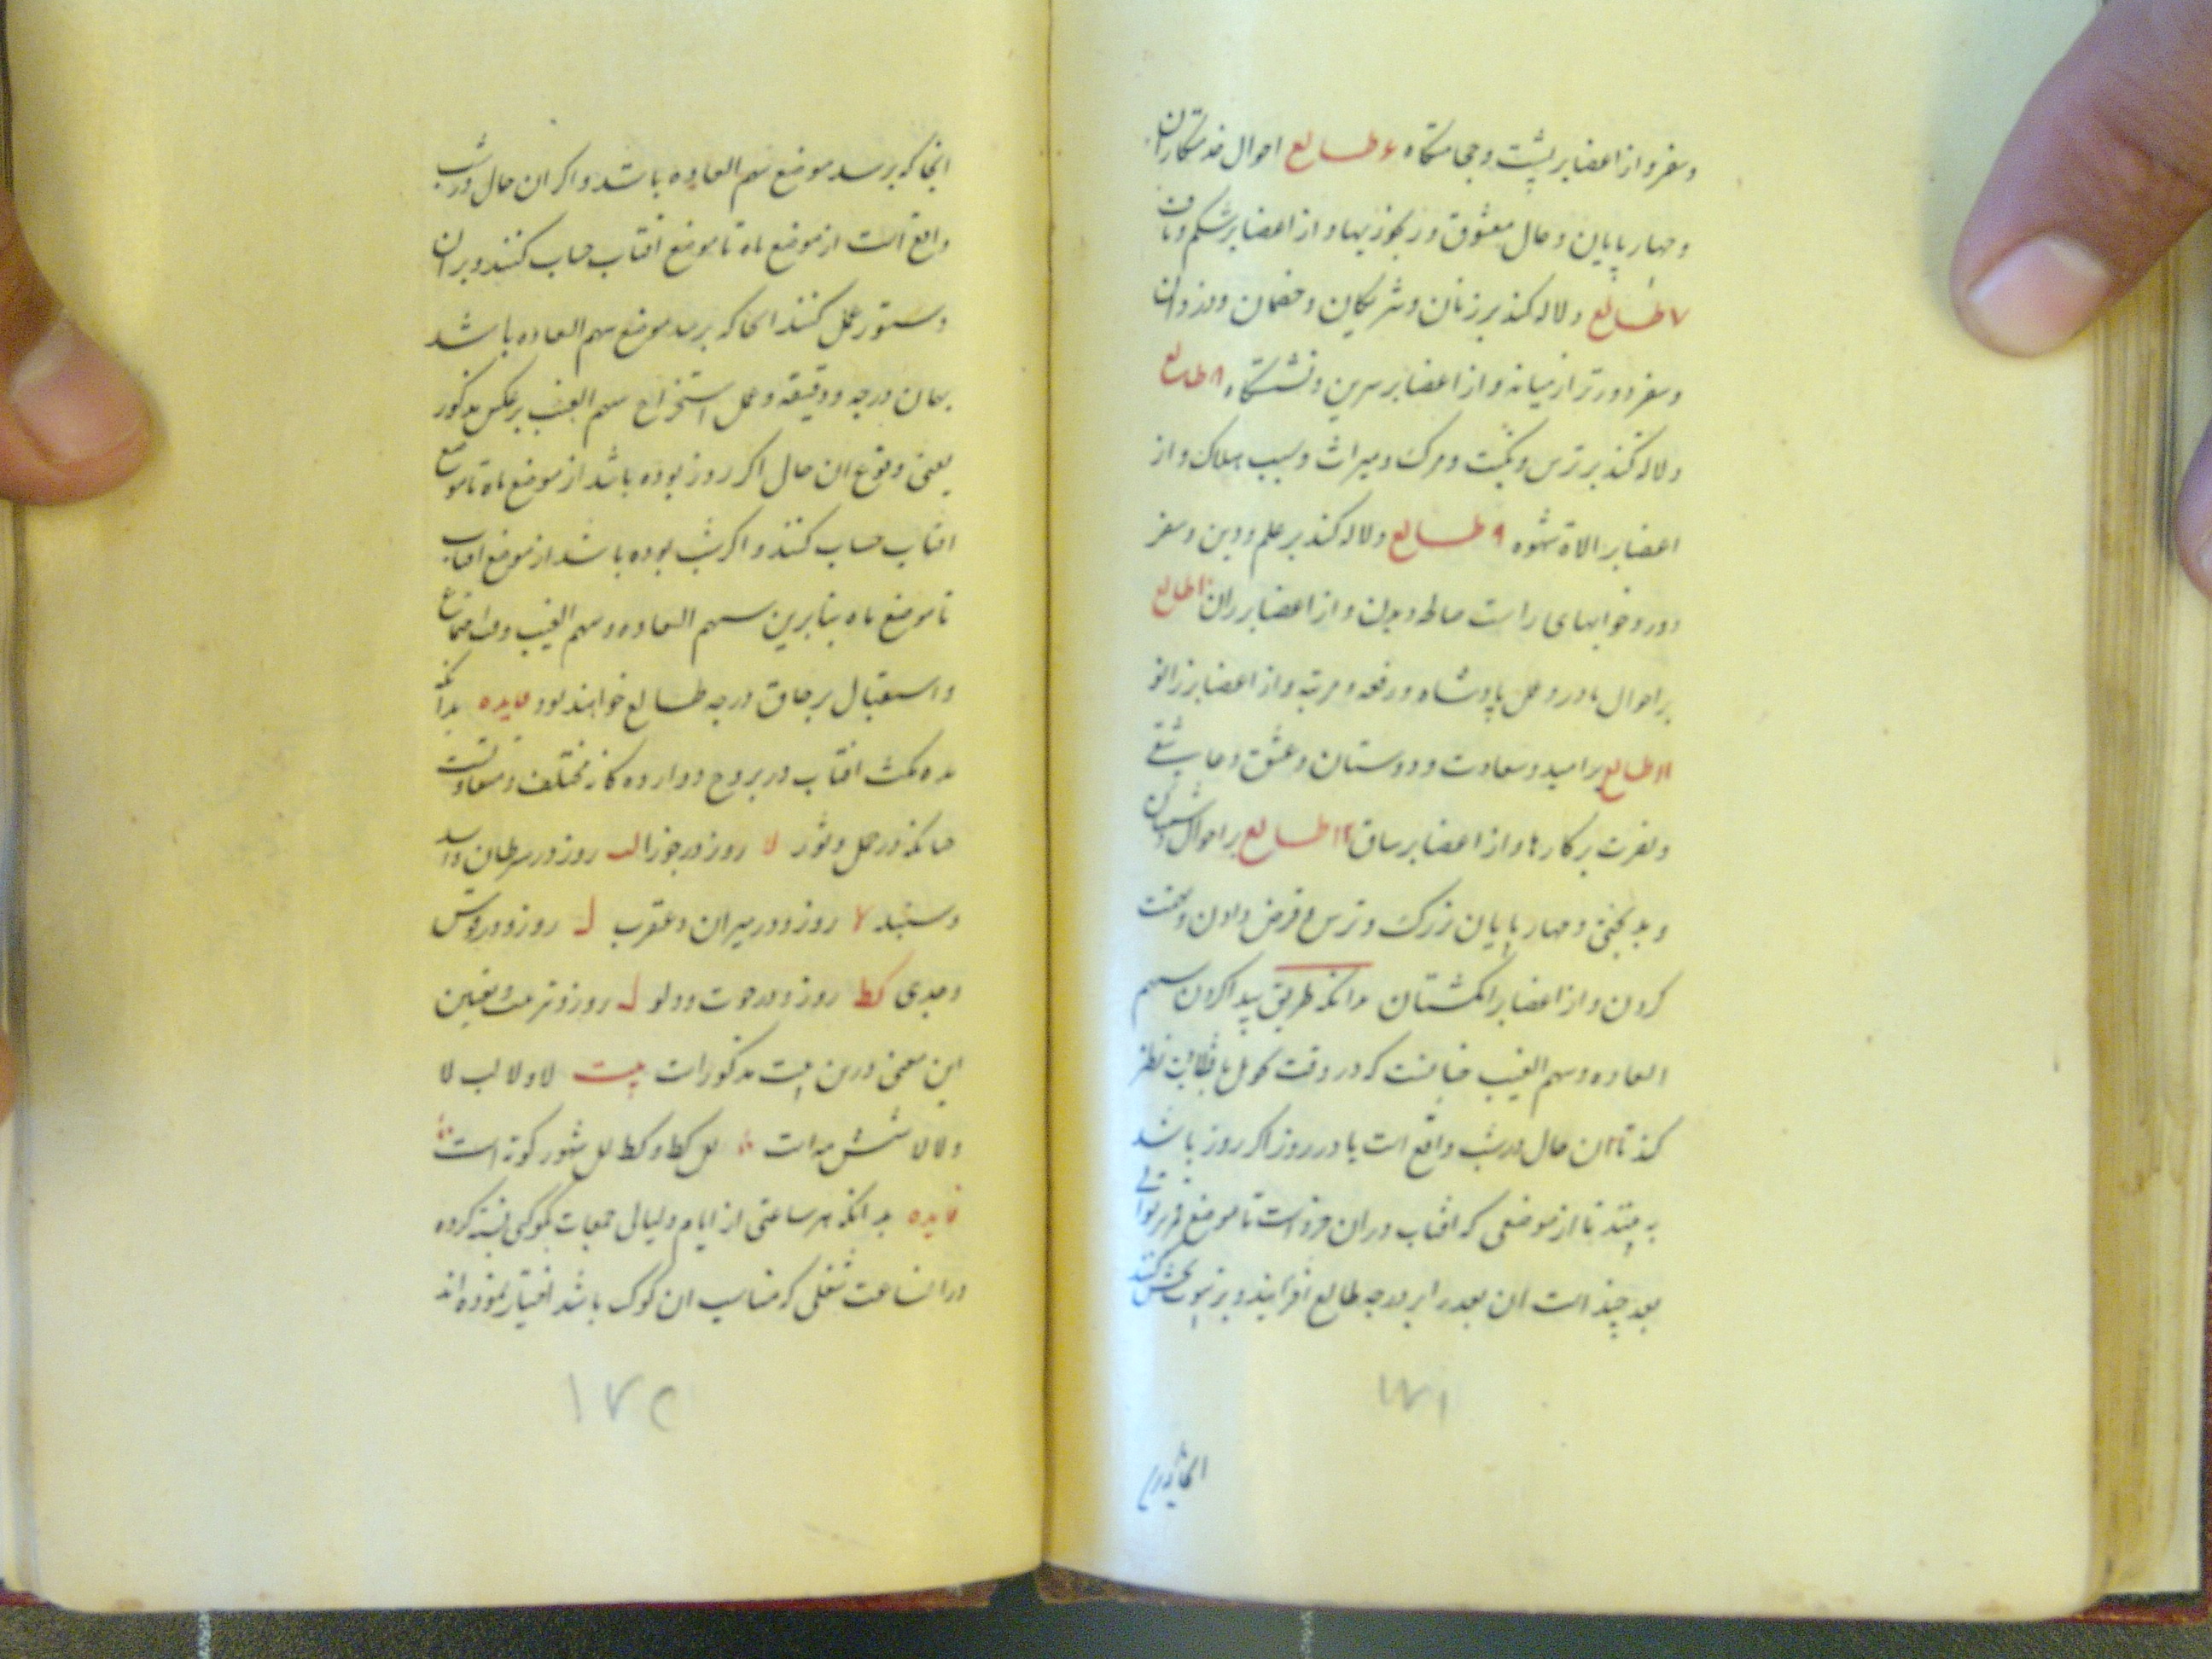 وسفر و از اعضا بر پشت و حجامتگاه ۶ طالع احوال خدمتکاران
و چهار پایان و حال معشوق و رنجوریها و از اعضا بر شکم و ناف
۷ طالع دلاله کند بر زنان و شریکان و خصمان و دزدان
و سفر دورتر از میانه و از اعضا بر سرین و نشستگاه ۸ طالع
دلاله کند بر ترس و نکبت و مرک و میراث و سبب هلاک و از
اعضا بر الاة شهوه ۹ طالع دلاله کند بر علم و دین و سفر
دور و خوابهای راست و از اعضا بر ران ۱۰ طالع
بر احوال مادر و عمل پادشاه و رفعه و مرتبه و از اعضا بر زانو
۱۱ طالع بر امید و سعادت و دوستان و عشق و عاشقی
و نفرت بر کارها و از اعضا بر ساق ۱۲ طالع بر احوال دشمنان
و بدبختی و چهار پایان بزرک و ترس و قرض دادن و سخت
کردن و از اعضا بر انکشتان بدانکه طریق پیدا کردن سهم
السعاده و سهم الغیب چنانست که در وقت نظر
کند تا ان حال در شب واقع است یا در روز اکر روز باشد
به بینند تا از موضعی که افتاب در ان جزو است تا موضع قمر
بعد چند است ان بعد را بر درجه طالع افزایند و بر بروج بخش کنند
انجا که برسد
۱۷۱
انجا که برسد موضع سهم السعاده باشد و اکر ان حال در شب
واقع است از موضع ماه تا موضع افتاب حساب کنند و بر ان
دستور عمل کنند انجا که برسد موضع سهم السعاده باشد
بهمان درجه و دقیقه و عمل استخراج سهم الغیب بر عکس مذکور
یعنی وقوع ان حال اکر روز بوده باشد از موضع ماه تا موضع
افتاب حساب کنند و اکر شب بوده باشد از موضع افتاب
تا موضع ماه بنابرین سهم السعاده و سهم الغیب وقت اجتماع
و استقبال بر حاق درجه طالع خواهند بود فایده بدانکه
مده مکث افتاب در بروج دوازده کانه مختلف و متفاوتست
چنانکه در حمل و ثور لا روز و در جوزا لب روز و در سرطان و اسد
و سنبله لا روز و در میزان و عقرب ل روز و در قوس
و جدی کط روز و در حوت و دلو ل روز و ترتیب و تعیین
این معنی درین بیت مذکور است بیت لا و لا لب لا
و لا لا شش مه است لل کط و کط لل شهور کوته است
فایده بدانکه هر ساعتی از ایام و لیالی جمعات بکوکبی نسبت کرده
در انساعت شغلی که مناسب ان کوکب باشد اختیار نموده اند
۱۷۲